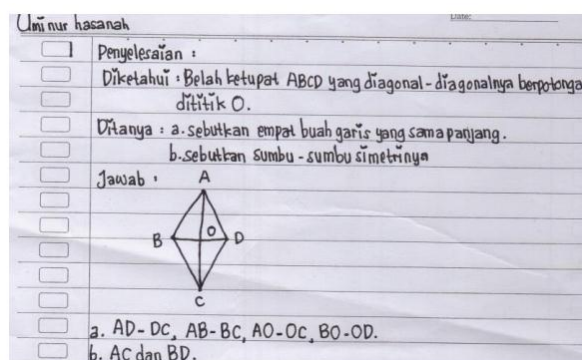 Date:
Umi nur hasanah
1 Penyelesaian :
Diketahui : Belah ketupat ABCD yang diagonal-diagonalnya berpotonga
dititik O.
Ditanya : a. sebutkan empat buah garis yang sama panjang.
b. sebutkan sumbu-sumbu simetrinya
Jawab :
A
B O D
C
a. AD-DC, AB-BC, AO-OC, BO-OD.
b. AC dan BD.